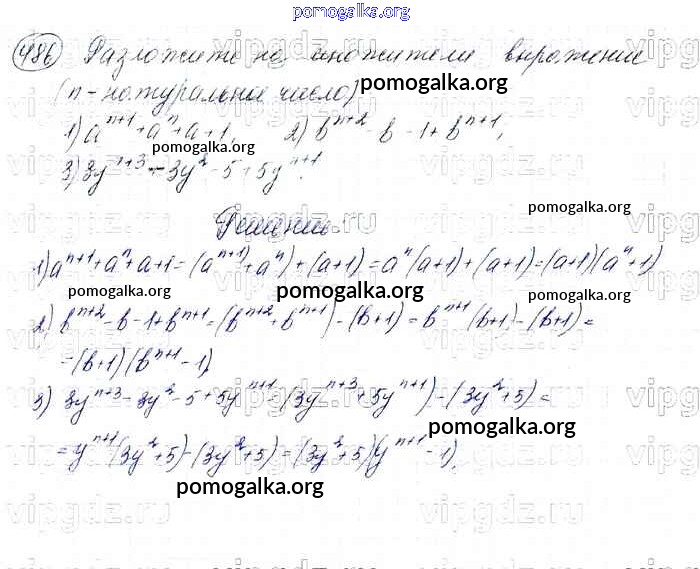 pomogalka.org
486) Разложите на множители выражение
(n - натуральное число)
pomogalka.org
1) aⁿ⁺¹ + aⁿ + a + 1; 2) bⁿ⁺² - b - 1 + bⁿ⁺¹;
pomogalka.org
3) 3yⁿ⁺³ - 3y² - 5 + 5yⁿ⁺¹.
pomogalka.org
Решение
1) aⁿ⁺¹ + aⁿ + a + 1 = (aⁿ⁺¹ + aⁿ) + (a + 1) = aⁿ(a + 1) + (a + 1) = (a + 1)(aⁿ + 1)
pomogalka.org pomogalka.org pomogalka.org
2) bⁿ⁺² - b - 1 + bⁿ⁺¹ = (bⁿ⁺² + bⁿ⁺¹) - (b + 1) = bⁿ⁺¹(b + 1) - (b + 1) =
= (b + 1)(bⁿ⁺¹ - 1)
3) 3yⁿ⁺³ - 3y² - 5 + 5yⁿ⁺¹ = (3yⁿ⁺³ + 5yⁿ⁺¹) - (3y² + 5) =
pomogalka.org
= yⁿ⁺¹(3y² + 5) - (3y² + 5) = (3y² + 5)(yⁿ⁺¹ - 1).
pomogalka.org